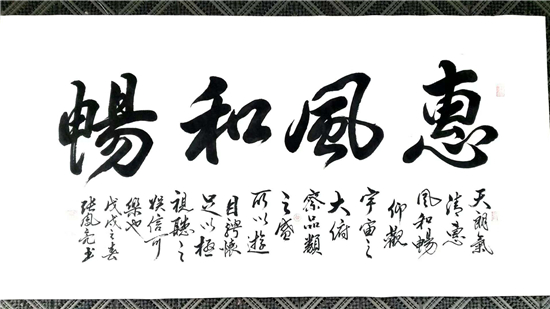 惠風和暢
天朗氣
清惠
風和暢
仰觀
宇宙之
大俯
察品類
之盛
所以遊
目騁懷
足以極
視聽之
娛信可
樂也
戊戌之春
張鳳亮書